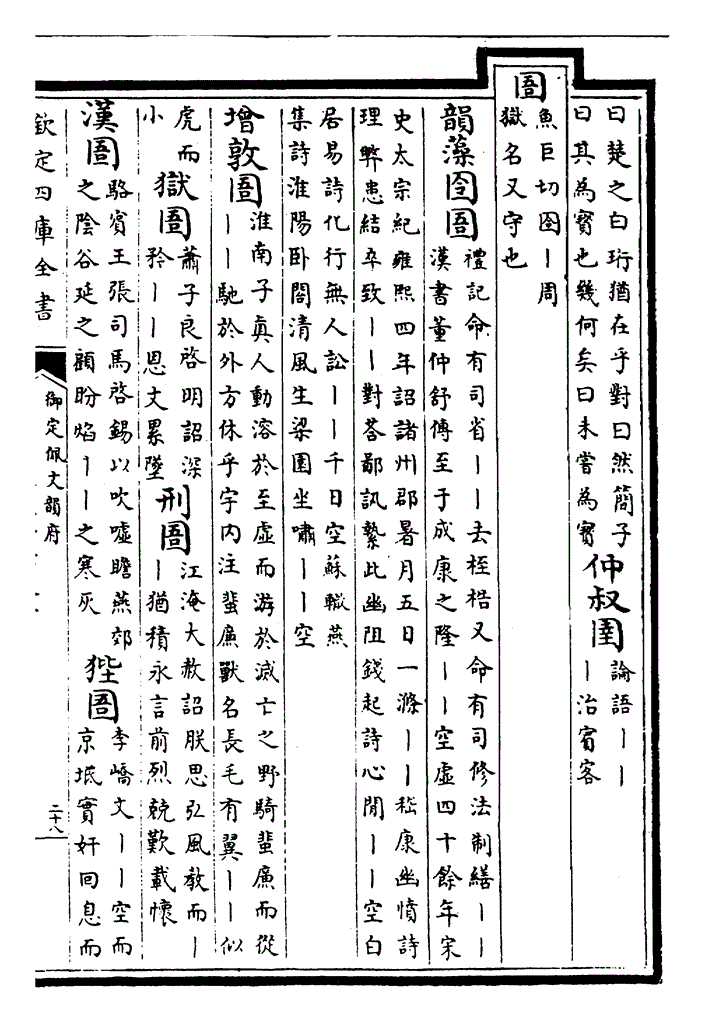 曰楚之白珩猶在乎對曰然簡子
曰其為寳也幾何矣曰未嘗為寳
仲叔圉
論語丨丨
丨治賓客
圄
魚巨切囹丨周
獄名又守也
韻藻囹圄
禮記命有司省丨丨去桎梏又命有司修法制繕丨丨
漢書董仲舒傳至于成康之隆丨丨空虛四十餘年宋
史太宗紀雍熙四年詔諸州郡暑月五日一滌丨丨嵇康幽憤詩
理弊患結卒致丨丨對荅鄙訊縶此幽阻錢起詩心閒丨丨空白
居易詩化行無人訟丨丨千日空蘇轍燕
集詩淮陽卧閤清風生梁園坐嘯丨丨空
增敦圄
淮南子真人動溶於至虛而游於滅亡之野騎蜚廉而從
丨丨馳於外方休乎宇内注蜚廉獸名長毛有翼丨丨似
虎而
小
獄圄
蕭子良啓明詔深
矜丨丨恩文累墜
刑圄
江淹大赦詔朕思弘風教而丨
丨猶積永言前烈兢歎載懷
漢圄
駱賓王張司馬啓錫以吹噓瞻燕郊
之陰谷延之顧盼焰丨丨之寒灰
狴圄
李嶠文丨丨空而
京坻實奸回息而
欽定四庫全書
御定佩文韻府
二十八